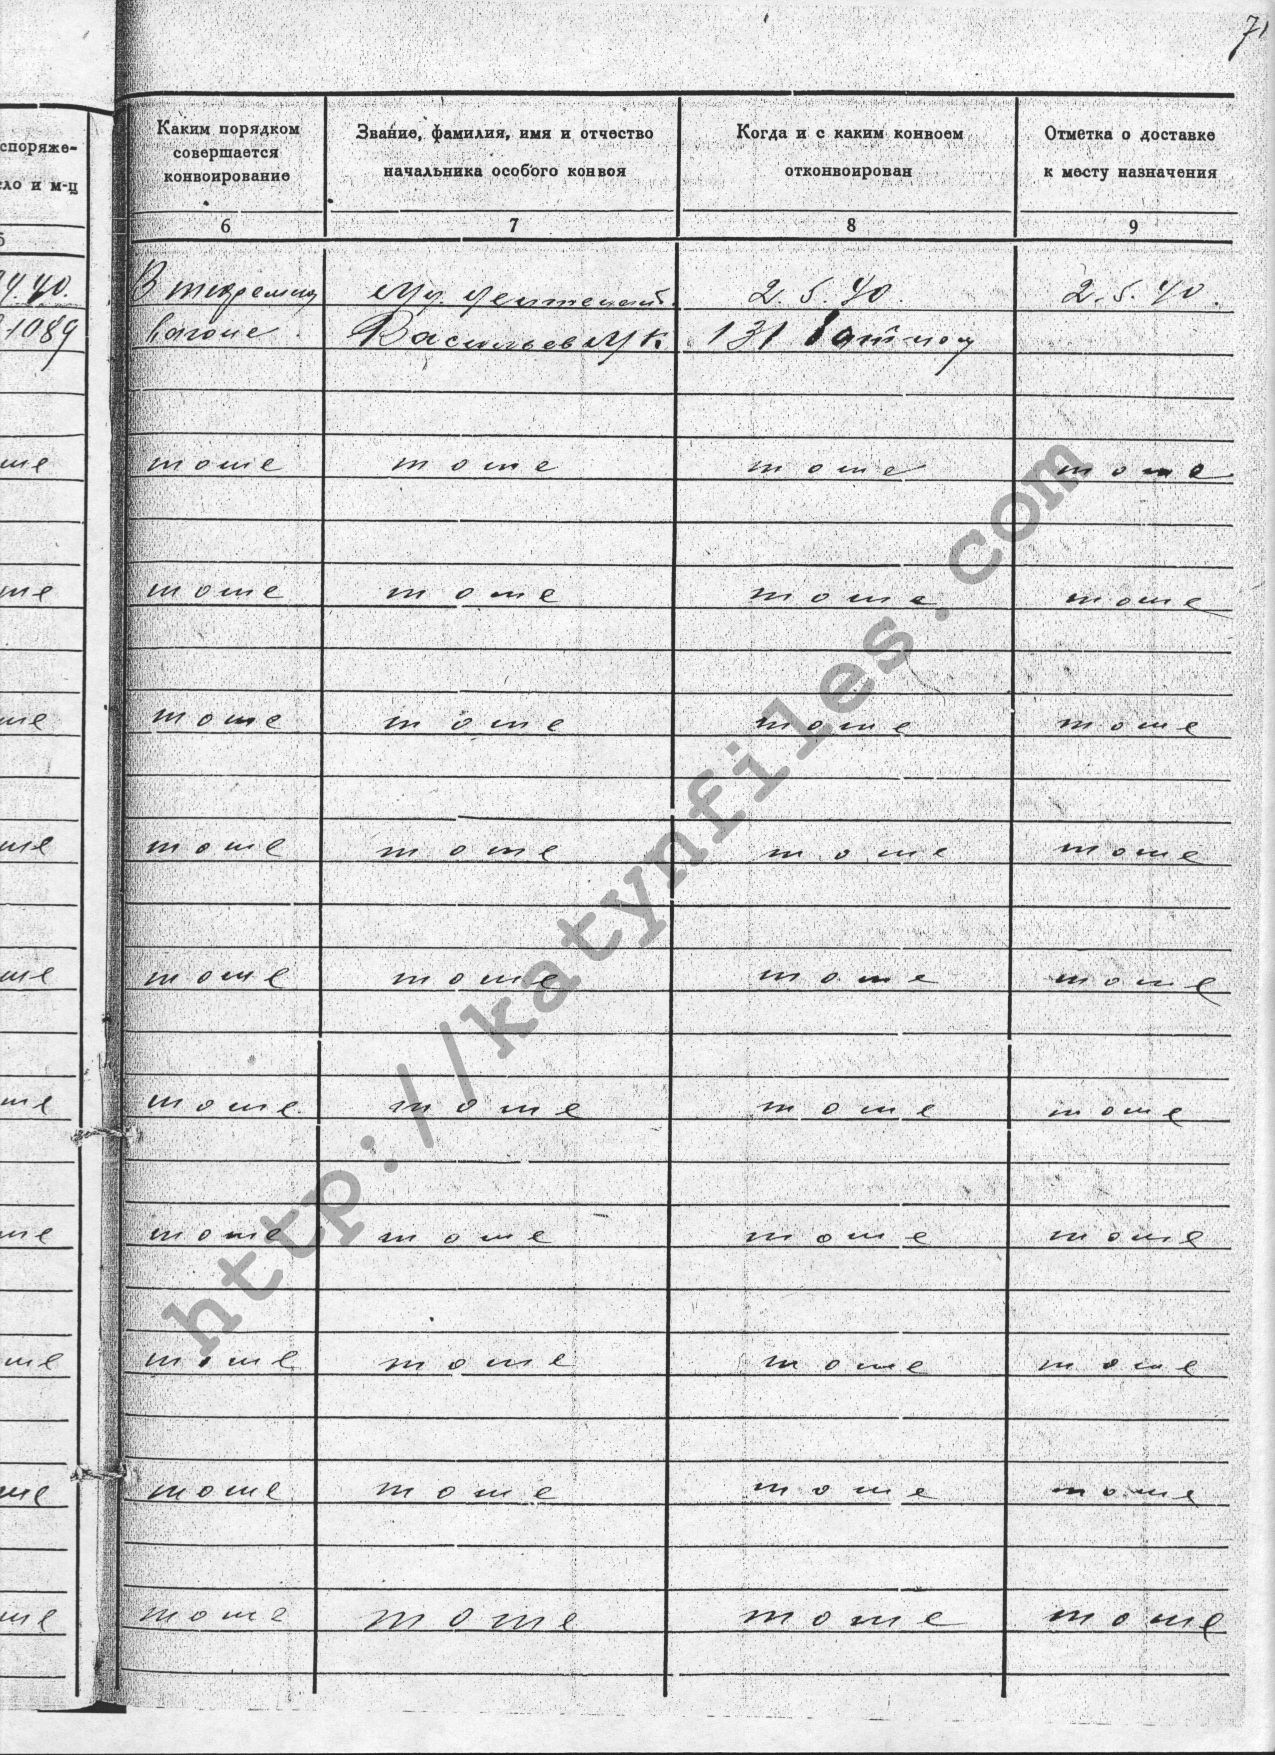 71
споряже-
сло и м-ц
5
Каким порядком
совершается
конвоирование
Звание, фамилия, имя и отчество
начальника особого конвоя
Когда и с каким конвоем
отконвоирован
Отметка о доставке
к месту назначения
6 7 8 9
4.40. В тюремном Мл. лейтенант 2.5.40 2.5.40.
1089 вагоне Васильевчук 131 батном
тоже тоже тоже тоже
тоже тоже тоже тоже
тоже тоже тоже тоже
тоже тоже тоже тоже
тоже тоже тоже тоже
тоже тоже тоже тоже
тоже тоже тоже тоже
тоже тоже тоже тоже
тоже тоже тоже тоже
тоже тоже тоже тоже
http://katynfiles.com